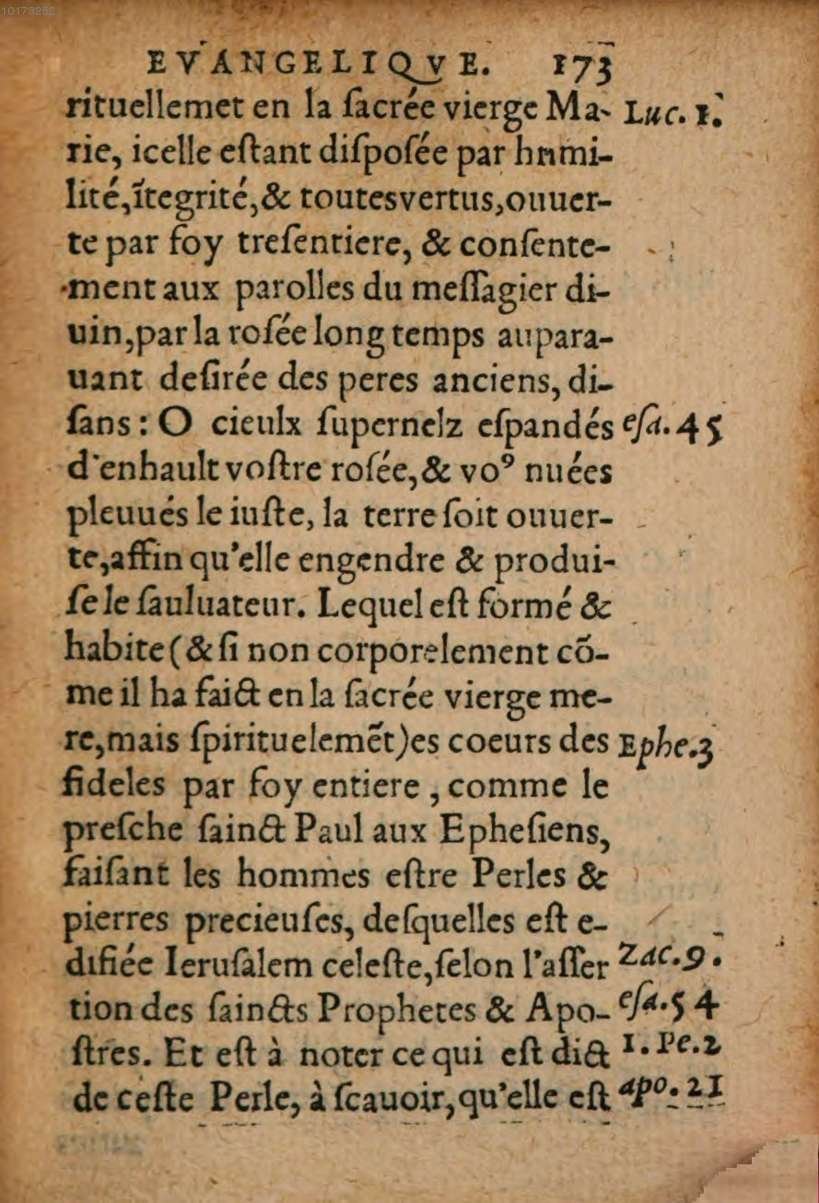 10173292
EVANGELIQVE. 173
rituellemet en la ſacrée vierge Ma- Luc. 1.
rie, icelle eſtant diſpoſée par hnmi-
lité,ĩtegrité,& toutesvertus,ouuer-
te par foy treſentiere, & conſente-
ment aux parolles du meſſagier di-
uin,par la roſée long temps aupara-
uant deſirée des peres anciens, di-
ſans: O cieulx ſupernelz eſpandés eſa. 45
d'enhault voſtre roſée,& voꝰ nuées
pleuués le iuſte, la terre ſoit ouuer-
te,affin qu'elle engendre & produi-
ſe le ſauluateur. Lequel eſt formé &
habite (& ſi non corporelement cõ-
me il ha faict en la ſacrée vierge me-
re,mais ſpirituelemẽt)es coeurs des Ephe.3
fideles par foy entiere , comme le
preſche ſainct Paul aux Epheſiens,
faiſant les hommes eſtre Perles &
pierres precieuſes, deſquelles eſt e-
difiée Ieruſalem celeſte,ſelon l'aſſer Zac.9.
tion des ſaincts Prophetes & Apo- eſa.54
ſtres. Et eſt à noter ce qui eſt dict 1. Pe.2
de ceſte Perle, à ſcauoir,qu'elle eſt apo. 21